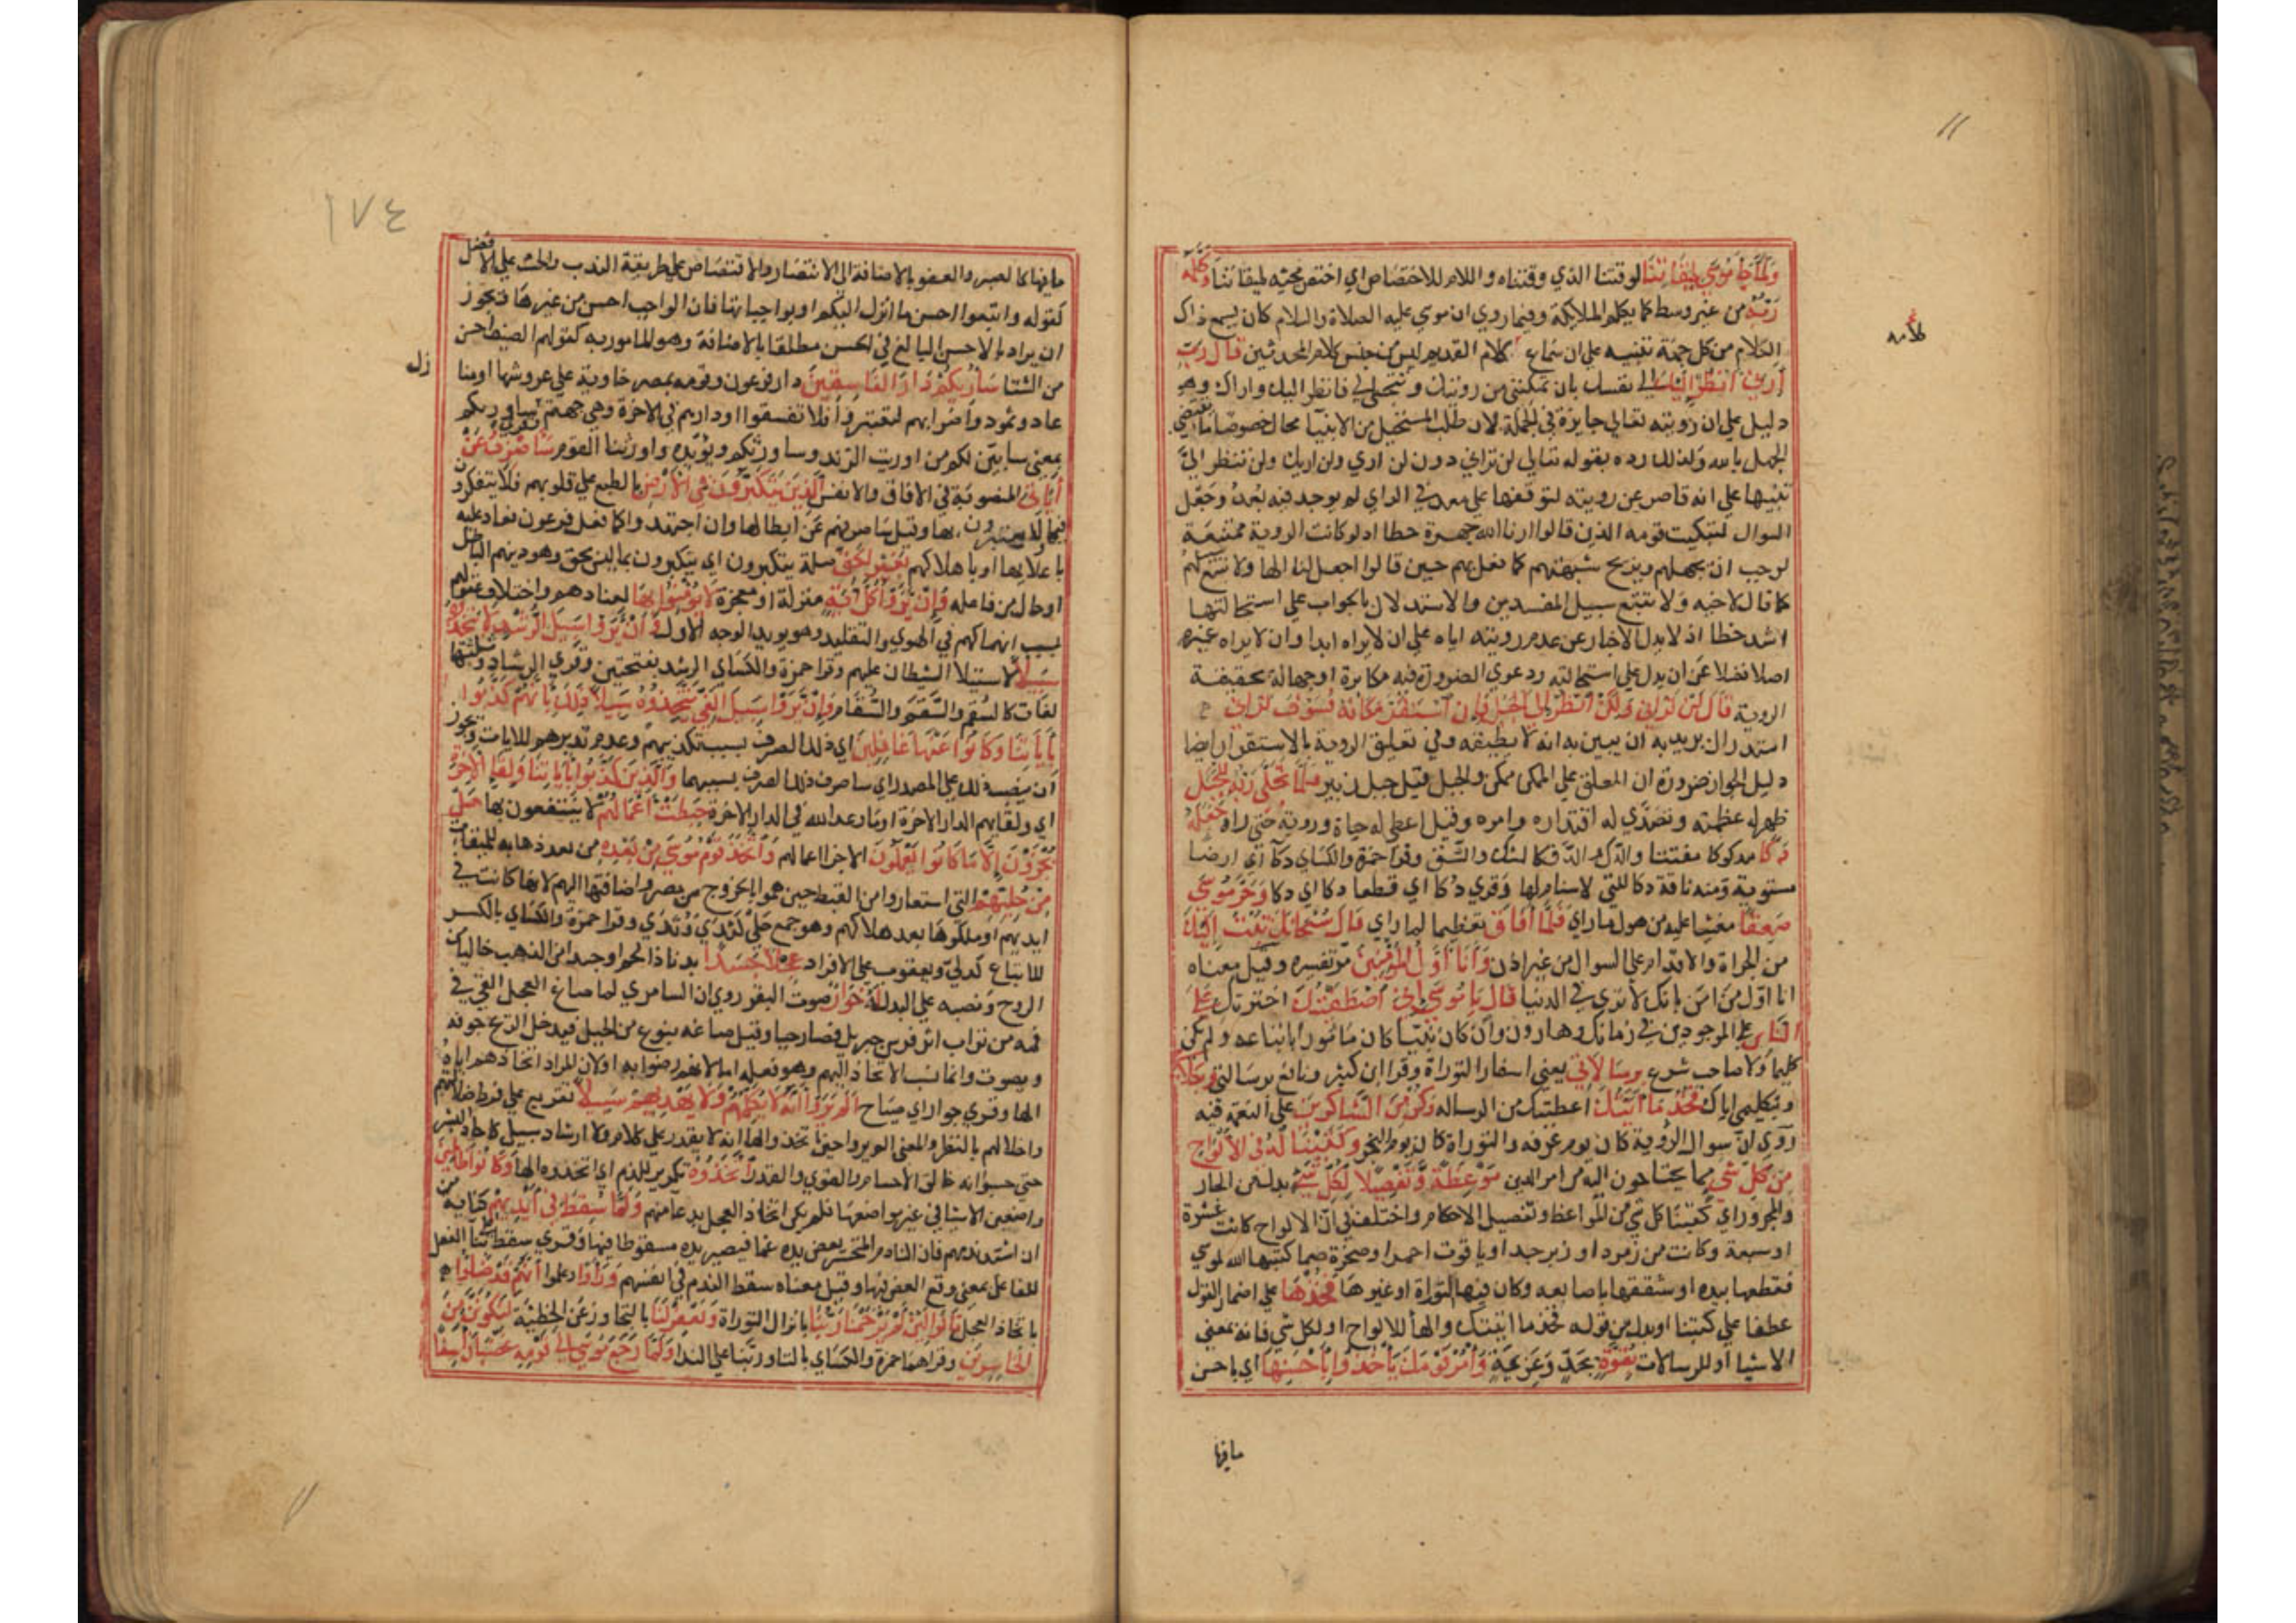 ولما جا موسى لميقاتنا لوقتنا الذي وقتناه واللام للاختصاص اي اختص مجيه لميقاتنا وكلمه
ربه من غير وسط كما يكلم الملايكة وفيما روي ان موسي عليه الصلاة والسلام كان يسمع ذاك
الكلام من كل جهة تنبيه علي ان سماع كلامه القديم ليس من جنس كلام المحدثين قال رب
ارني انظر اليك الي نفسك بان تمكنني من رويتك او تتجلي لي فانظر اليك واراك وهو
دليل علي ان رويته تعالي جايزة في الجملة لان طلب المستحيل من الانبيا محال خصوصا ما يقتضي
الجهل بالله ولذلك رده بقوله تعالي لن تراني دون لن اري ولن اريك ولن تنظر الي
تنبيها علي انه قاصر عن رويته لتوقفها علي معد في الراي لم يوجد فيه بعد وجعل
السوال لتبكيت قومه الذين قالوا ارنا الله جهرة خطا اذ لو كانت الروية ممتنعة
لوجب ان يجهلهم ويزيح شبهتهم كما فعل بهم حين قالوا اجعل لنا الها ولا تتبع
كما قال لاخيه ولا تتبع سبيل المفسدين والاستدلال بالجواب علي استحالتها
اشد خطا اذ لا يدل الاخبار عن عدم رويته اياه علي ان لا يراه ابدا وان لا يراه غيره
اصلا فضلا عن ان يدل علي استحالته ودعوي الضرورة فيه مكابرة او جهالة بحقيقة
الروية قال لن تراني ولكن انظر الي الجبل فان استقر مكانه فسوف تراني
استدراك يريد به ان يبين به انه لا يطيقه وفي تعليق الروية بالاستقرار ايضا
دليل الجواز ضرورة ان المعلق علي الممكن ممكن والجبل قيل جبل زبير فلما تجلي ربه للجبل
ظهر له عظمته وتصدي له اقتداره وامره وقيل اعطي له حياة وروية حتي راه جعله
دكا مدكوكا مفتتا والدك والدق كالشك والشق وقرا حمزة والكساي دكآ اي ارضا
مستوية ومنه ناقة دكا للتي لا سنام لها وقري دكا اي قطعا دكا اي دكا وخر موسي
صعقا مغشيا عليه من هول ما راي فلما افاق تعظيما لما راي قال سبحانك تبت اليك
من الجراة والاقدام علي السوال من غير اذن وانا اول المؤمنين مر تفسيره وقيل معناه
انا اول من امن بانك لا تري في الدنيا قال يا موسي اني اصطفيتك اخترتك علي
الناس علي الموجودين في زمانك وهارون وان كان نبيا كان مامورا باتباعه ولم يكن
كليما ولا صاحب شرع برسالاتي يعني اسفار التوراة وقرا ابن كثير ونافع برسالتي وبكلامي
وبتكليمي اياك فخذ ما اتيتك اعطيتك من الرساله وكن من الشاكرين علي النعمة فيه
روي ان سوال الروية كان يوم عرفه والتوراة كان يوم النحر وكتبنا له في الالواح
من كل شي مما يحتاجون اليه من امر الدين موعظة وتفصيلا لكل شي بدل من الجار
والمجرور اي كتبنا كل شي من المواعظ وتفصيل الاحكام واختلف في ان الالواح كانت عشرة
او سبعة وكانت من زمرد او زبرجد او ياقوت احمر او صخرة صما كتبها الله لموسي
فقطعها بيده او شققها باصابعه وكان فيها التوراة او غيرها فخذها علي اضمار القول
عطفا علي كتبنا او بدل من قوله فخذ ما اتيتك والها للالواح او لكل شي فانه بمعني
الاشيا او للرسالات بقوة بجد وعزيمة وامر قومك ياخذوا باحسنها اي باحسن
مافيها
١٧٤
ما فيها كالصبر والعفو بالاضافة الي الانتصار والاقتصاص علي طريقة الندب والحث علي الافضل
كقوله واتبعوا احسن ما انزل اليكم او بواجباتها فان الواجب احسن من غيرها ويجوز
ان يراد بالاحسن البالغ في الحسن مطلقا بالاضافة وهو المامور به كقولهم الصيف احر
من الشتا ساريكم دار الفاسقين دار فرعون وقومه بمصر خاوية علي عروشها او منا
عاد وثمود واضرابهم لتعتبروا فلا تفسقوا او دارهم في الاخرة وهي جهنم وقري ساوريكم
بمعني سابين لكم من اوريت الزند وساورثكم ويؤيده واورثنا القوم ساصرف عن
اياتي المنصوبة في الافاق والانفس الذين يتكبرون في الارض بالطبع علي قلوبهم فلا يتفكرون
فيها ولا يعتبرون بها وقيل ساصرفهم عن ابطالها وان اجتهدوا كما فعل فرعون فعاد عليه
باعلائها او باهلاكهم بغير الحق صلة يتكبرون اي يتكبرون بما ليس بحق وهو دينهم الباطل
او حال من فاعله وان يروا كل اية منزلة او معجزة لا يؤمنوا بها لعنادهم واختلال عقولهم
بسبب انهماكهم في الهوي والتقليد وهو يويد الوجه الاول وان يروا سبيل الرشد لا يتخذوه
سبيلا لاستيلا الشيطان عليهم وقرا حمزة والكساي الرشد بفتحتين وقري الرشاد وثلثتها
لغات كالسقم والسقم والسقام وان يروا سبيل الغي يتخذوه سبيلا ذلك بانهم كذبوا
باياتنا وكانوا عنها غافلين اي ذلك الصرف بسبب تكذيبهم وعدم تدبرهم للايات ويجوز
ان ينصب ذلك علي المصدر اي ساصرف ذلك الصرف بسببهما والذين كذبوا باياتنا ولقا الاخرة
اي ولقايهم الدار الاخرة او ما وعد الله في الدار الاخرة حبطت اعمالهم لا ينتفعون بها هل
يجزون الا ما كانوا يعملون الا جزا اعمالهم واتخذ قوم موسي من بعده من بعد ذهابه للميقات
من حليهم التي استعاروا من القبط حين هموا بالخروج من مصر واضافتها اليهم لانها كانت في
ايديهم او ملكوها بعد هلاكهم وهو جمع حلي كثدي وثدي وقرا حمزة والكساي بالكسر
للاتباع كدلي ويعقوب علي الافراد عجلا جسدا بدنا ذا لحم او جسدا من الذهب خاليا من
الروح ونصبه علي البدل له خوار صوت البقر روي ان السامري لما صاغ العجل القي في
فمه من تراب اثر فرس جبريل فصار حيا وقيل صاغه بنوع من الحيل فيدخل الريح جوفه
ويصوت وانما نسب الاتخاذ اليهم وهو فعله اما لانهم رضوا به او لان المراد اتخاذهم اياه
الها وقري جوار اي صياح الم يروا انه لا يكلمهم ولا يهديهم سبيلا تقريع علي فرط ضلالتهم
واخلالهم بالنظر والمعني الم يروا حين اتخذوا الها انه لا يقدر علي كلام ولا ارشاد سبيل كاحاد البشر
حتي حسبوا انه خالق الاجسام والقوي والقدر اتخذوه تكرير للذم اي اتخذوه الها وكانوا ظالمين
واضعين الاشيا في غير مواضعها فلم يكن اتخاذ العجل بدعا منهم ولما سقط في ايديهم كناية من
ان اشتد ندمهم فان النادم المتحسر يعض يده غما فيصير يده مسقوطا فيها وقري سقط علي بنا الفعل
للفاعل بمعني وقع العض فيها وقيل معناه سقط الندم في انفسهم وراوا وعلموا انهم قد ضلوا
باتخاذ العجل قالوا لئن لم يرحمنا ربنا بانزال التوراة ويغفر لنا بالتجاوز عن الخطيئة لنكونن من
الخاسرين وقراهما حمزة والكساي بالتا وربنا علي الندا ولما رجع موسي الي قومه غضبان اسفا